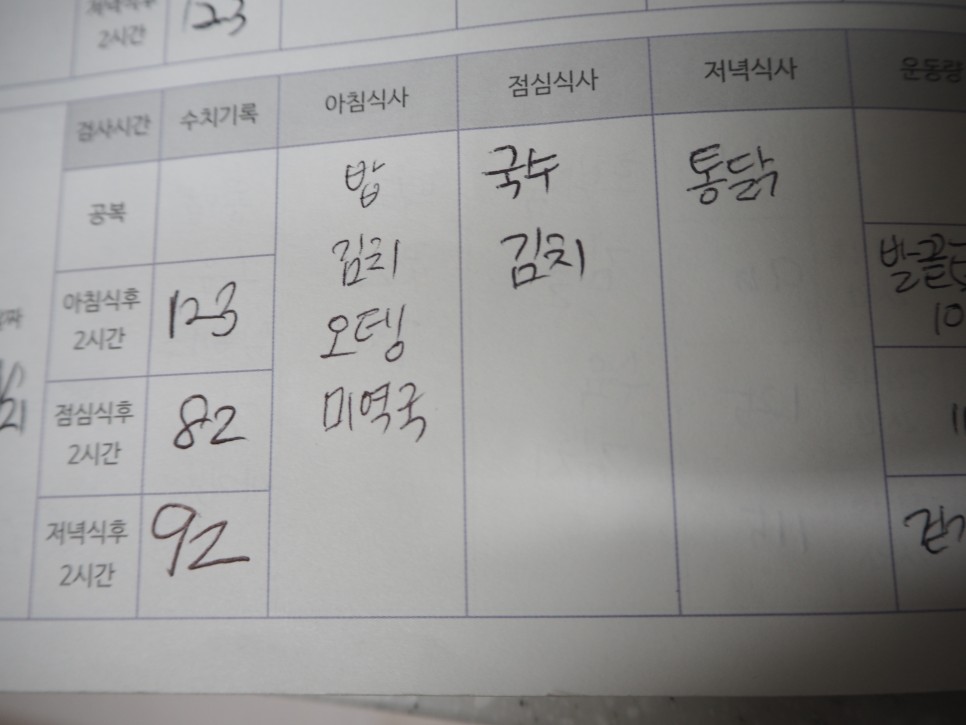 저녁식후
2시간
123
검사시간 수치기록 아침식사 점심식사 저녁식사 운동량
공복
밥 국수 통닭
김치 김치
오뎅
미역국
아침식후
2시간
123
10
점심식후
2시간
82
저녁식후
2시간
92
21